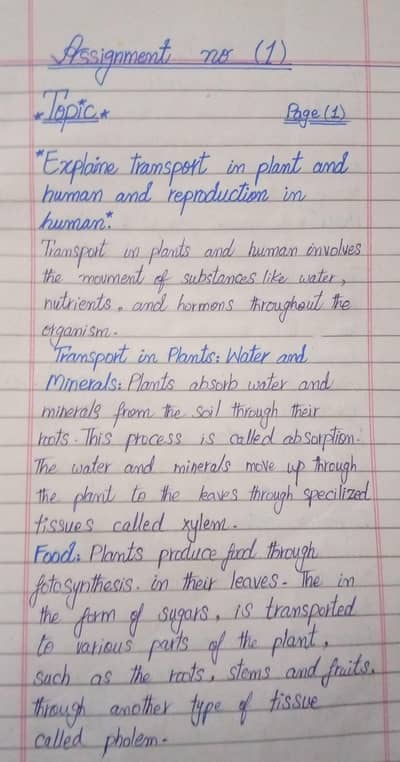 Assignment no (1)
*Topic*
Page (1)
"Explaine transport in plant and
human and reproduction in
human."
Transport in plants and human involves
the movment of substances like water,
nutrients, and hormons throughout the
organism.
Transport in Plants: Water and
Minerals: Plants absorb water and
minerals from the soil through their
roots. This process is called absorption.
The water and minerals move up through
the plant to the leaves through specilized
tissues called xylem.
Food: Plants produce food through
fotosynthesis. in their leaves. The in
the form of sugars, is transported
to various parts of the plant,
such as the roots, stems and fruits.
through another type of tissue
called pholem.